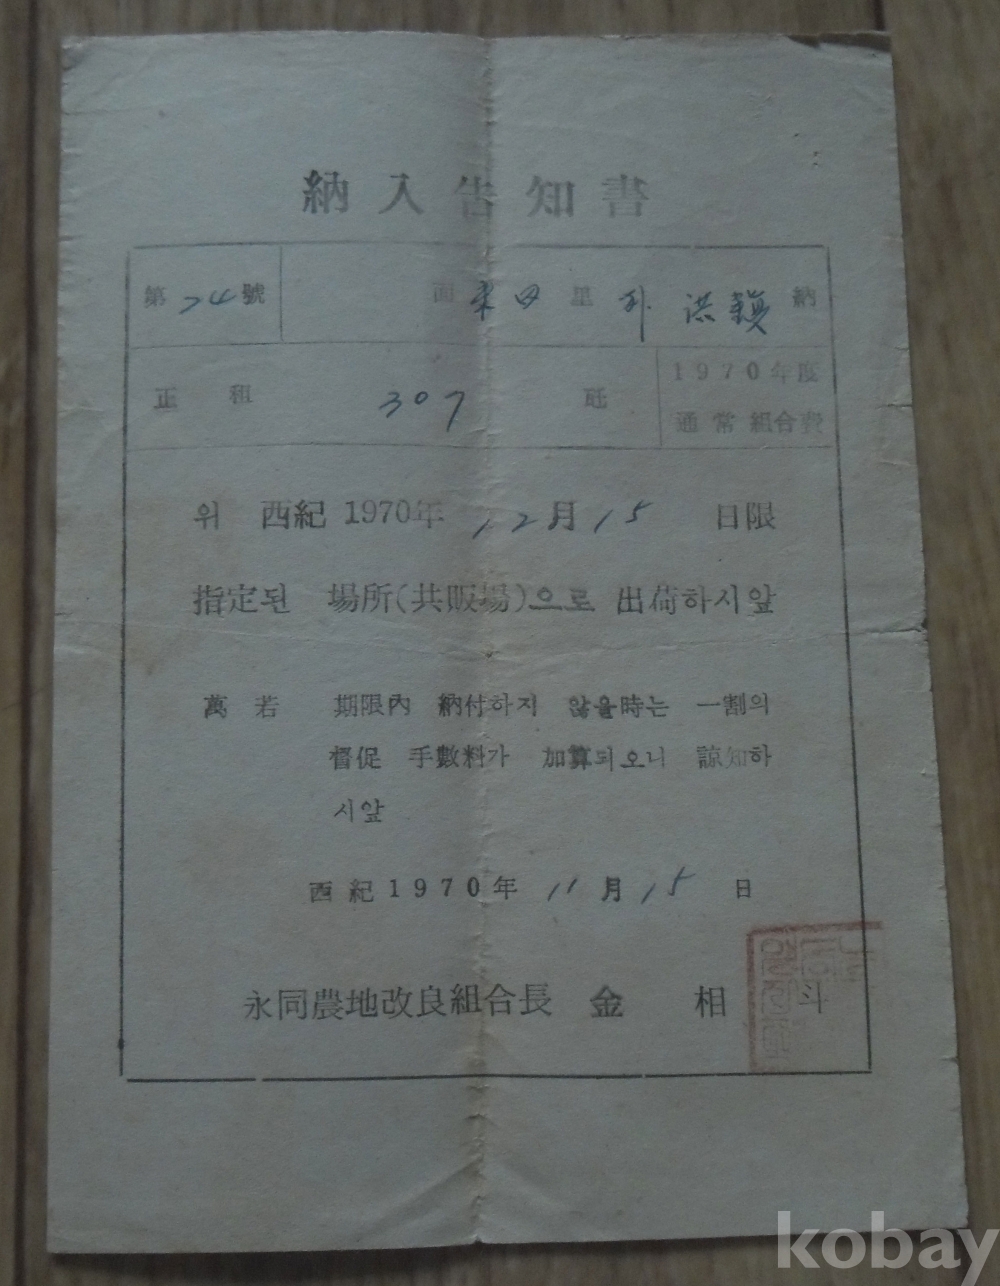 納入告知書
第 74 號 面 里 洪 納
正租 307 瓩 1970年度
通常組合費
위 西紀 1970年 12月 15 日限
指定된 場所(共販場)으로 出荷하시앞
萬若 期限內 納付하지 않을時는 一割의
督促 手數料가 加算되오니 諒知하
시앞
西紀 1970年 11月 15 日
永同農地改良組合長 金 相 斗
kobay